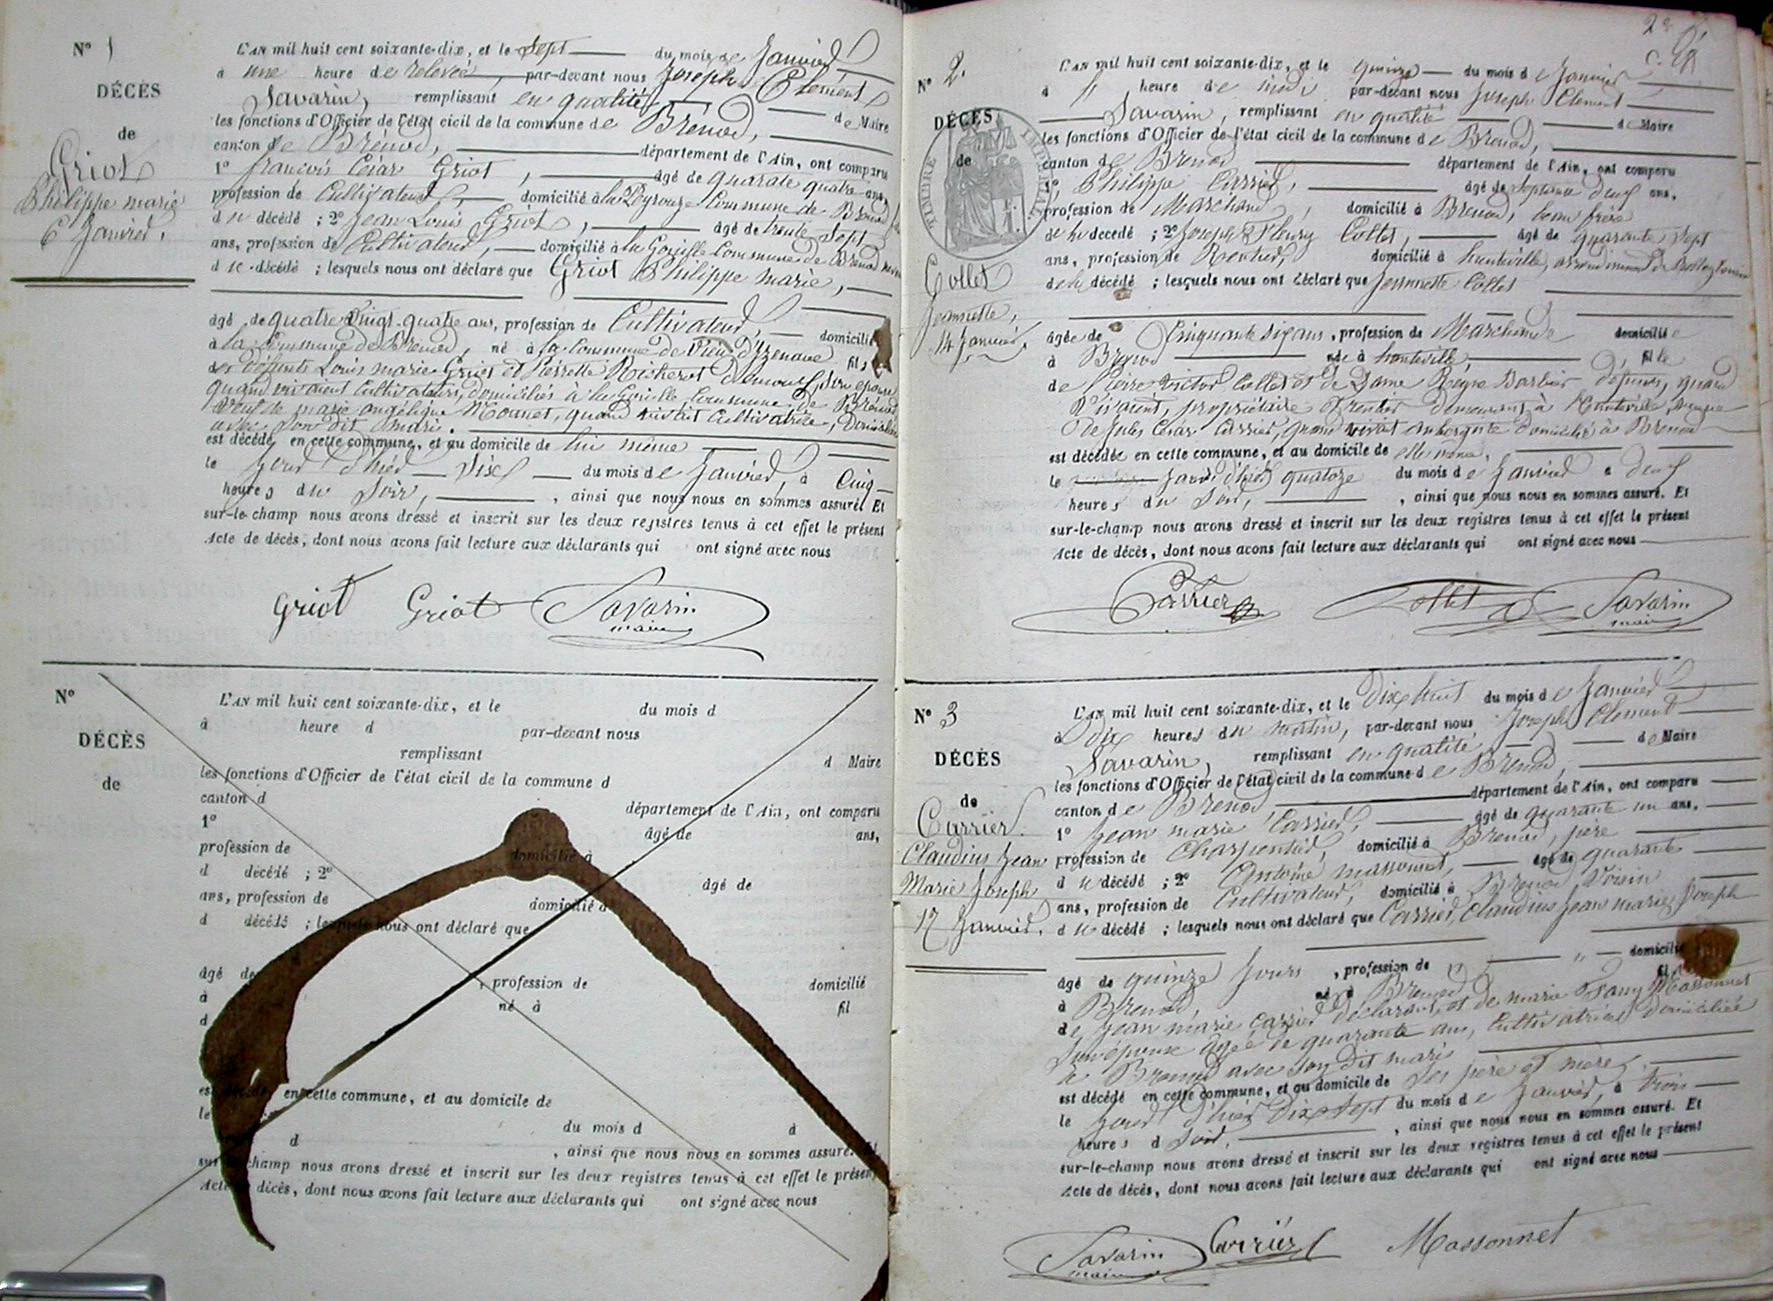 N° 1
DÉCÈS
de
Griot
Philippe marie
6 Janvier.
L'AN mil huit cent soixante-dix, et le Sept du mois de Janvier
à une heure de relevée, par-devant nous Joseph Clément
Savarin, remplissant en qualité de Maire
les fonctions d'Officier de l'état civil de la commune de Brénod,
canton de Brénod, département de l'Ain, ont comparu
1° françois César Griot, âgé de quarante quatre ans,
profession de Cultivateur, domicilié à la Commune de Brénod
du décédé ; 2° Jean Louis Griot, âgé de trente Sept
ans, profession de Cultivateur, domicilié à la Commune de Brénod
du décédé ; lesquels nous ont déclaré que Griot Philippe marie,
âgé de quatre Vingt quatre ans, profession de Cultivateur, domicilié
à la Commune de Brénod, né à la Commune de Vieu d'Izenave fils
de défunts Louis marie Griot et Pierrette
quand vivaient Cultivateurs, domiciliés à la Commune de Brénod
Veuf de marie angélique Monnet, quand vivait Cultivatrice, Domiciliée
avec Son dit mari.
est décédé en cette commune, et au domicile de lui même
le Jour d'hier Six du mois de Janvier, à Cinq
heures du Soir, , ainsi que nous nous en sommes assuré. Et
sur-le-champ nous avons dressé et inscrit sur les deux registres tenus à cet effet le présent
Acte de décès, dont nous avons fait lecture aux déclarants qui ont signé avec nous
Griot Griot Savarin
maire
N°
DÉCÈS
de
L'AN mil huit cent soixante-dix, et le du mois d
à heure d par-devant nous
remplissant d Maire
les fonctions d'Officier de l'état civil de la commune d
canton d département de l'Ain, ont comparu
1° âgé de ans,
profession de domicilié à
d décédé ; 2° âgé de
ans, profession de domicilié à
d décédé ; lesquels nous ont déclaré que
âgé de , profession de domicilié
à né à fil
d
est décédé en cette commune, et au domicile de
le du mois d à
d , ainsi que nous nous en sommes assuré. Et
sur-le-champ nous avons dressé et inscrit sur les deux registres tenus à cet effet le présent
Acte de décès, dont nous avons fait lecture aux déclarants qui ont signé avec nous
N° 2.
DÉCÈS
de
TIMBRE IMPÉRIAL
Collet
Jeannette,
14 Janvier.
L'AN mil huit cent soixante-dix, et le quinze du mois de Janvier
à heure de midi par-devant nous Joseph Clément
Savarin, remplissant en qualité de Maire
les fonctions d'Officier de l'état civil de la commune de Brenod,
canton de Brenod département de l'Ain, ont comparu
1° Philippe Carrier, âgé de Septante deux ans,
profession de Marchand, domicilié à Brenod, beau frère
de la décédée ; 2° Joseph Fleury Collet, âgé de quarante Sept
ans, profession de Rentier, domicilié à hauteville,
de la décédée ; lesquels nous ont déclaré que Jeannette Collet
âgée de Cinquante Six ans, profession de Marchande domiciliée
à Brenod née à hauteville, fille
de Pierre Victor Collet et de Dame Reyne Barbier défunts, quand
Vivaient, propriétaire & rentier demeurant à Hauteville, Veuve
de Jules César Carrier, quand vivait aubergiste domicilié à Brenod
est décédée en cette commune, et au domicile de elle même.
le Jour d'hier quatoze du mois de Janvier à deux
heures du Soir, , ainsi que nous nous en sommes assuré. Et
sur-le-champ nous avons dressé et inscrit sur les deux registres tenus à cet effet le présent
Acte de décès, dont nous avons fait lecture aux déclarants qui ont signé avec nous
Carrier Collet Savarin
maire
N° 3
DÉCÈS
de
Carrier.
Claudius Jean
Marie Joseph
17 Janvier.
L'AN mil huit cent soixante-dix, et le Dix huit du mois de Janvier
à Dix heures du matin, par-devant nous Joseph Clément
Savarin, remplissant en qualité, de Maire
les fonctions d'Officier de l'état civil de la commune de Brenod,
canton de Brenod département de l'Ain, ont comparu
1° Jean marie Carrier, âgé de quarante un ans,
profession de Charpentier, domicilié à Brenod, père
du décédé ; 2° Antoine massonnet, âgé de quarante
ans, profession de Cultivateur, domicilié à Brenod Voisin
du décédé ; lesquels nous ont déclaré que Carrier, Claudius Jean marie Joseph
âgé de quinze Jours, profession de " " domicilié
à Brenod, né à Brenod fils
de Jean marie Carrier déclarant, et de marie Fany Massonnet
Son épouse âgée de quarante ans, Cultivatrice domiciliée
à Brenod avec Son Dit mari
est décédé en cette commune, et au domicile de Ses père et mère.
le Jour d'hier Dix Sept du mois de Janvier, à trois
heures d Soir, , ainsi que nous nous en sommes assuré. Et
sur-le-champ nous avons dressé et inscrit sur les deux registres tenus à cet effet le présent
Acte de décès, dont nous avons fait lecture aux déclarants qui ont signé avec nous
Savarin Carrier Massonnet
maire